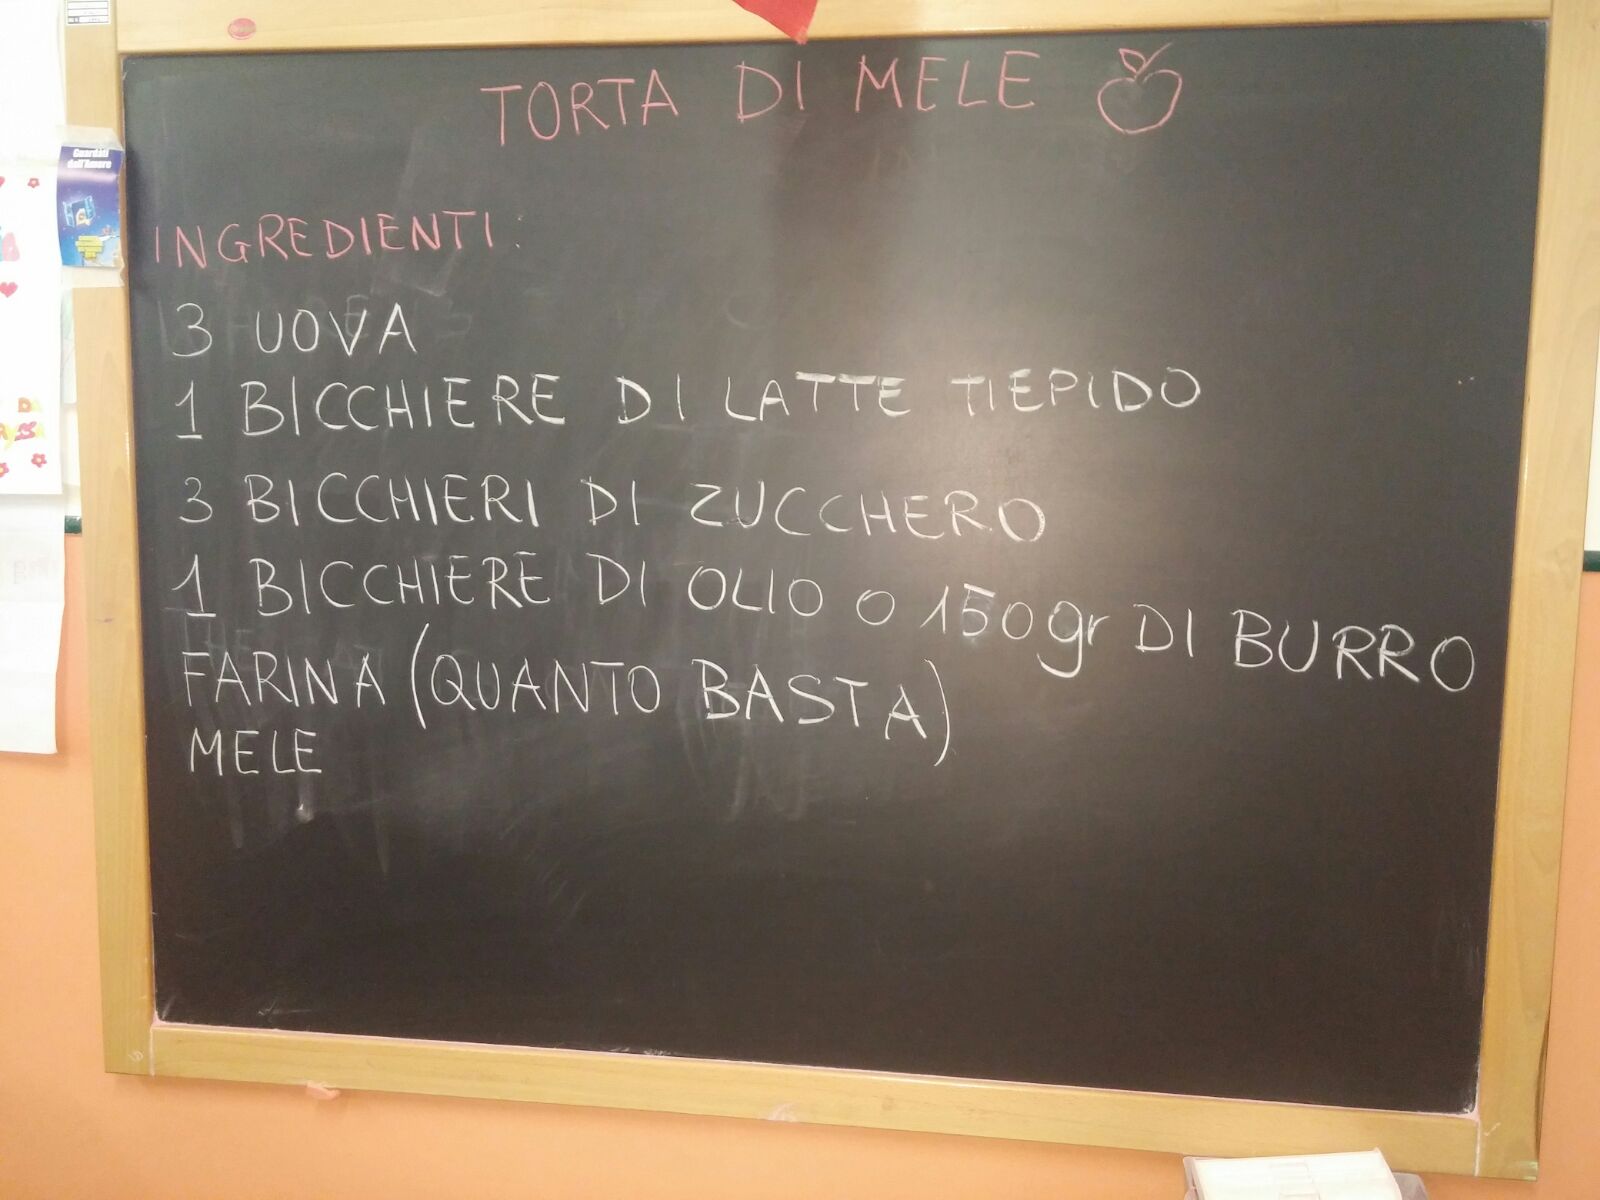 TORTA DI MELE
INGREDIENTI:
3 UOVA
1 BICCHIERE DI LATTE TIEPIDO
3 BICCHIERI DI ZUCCHERO
1 BICCHIERE DI OLIO O 150gr DI BURRO
FARINA (QUANTO BASTA)
MELE
Guardati
dall'Amore